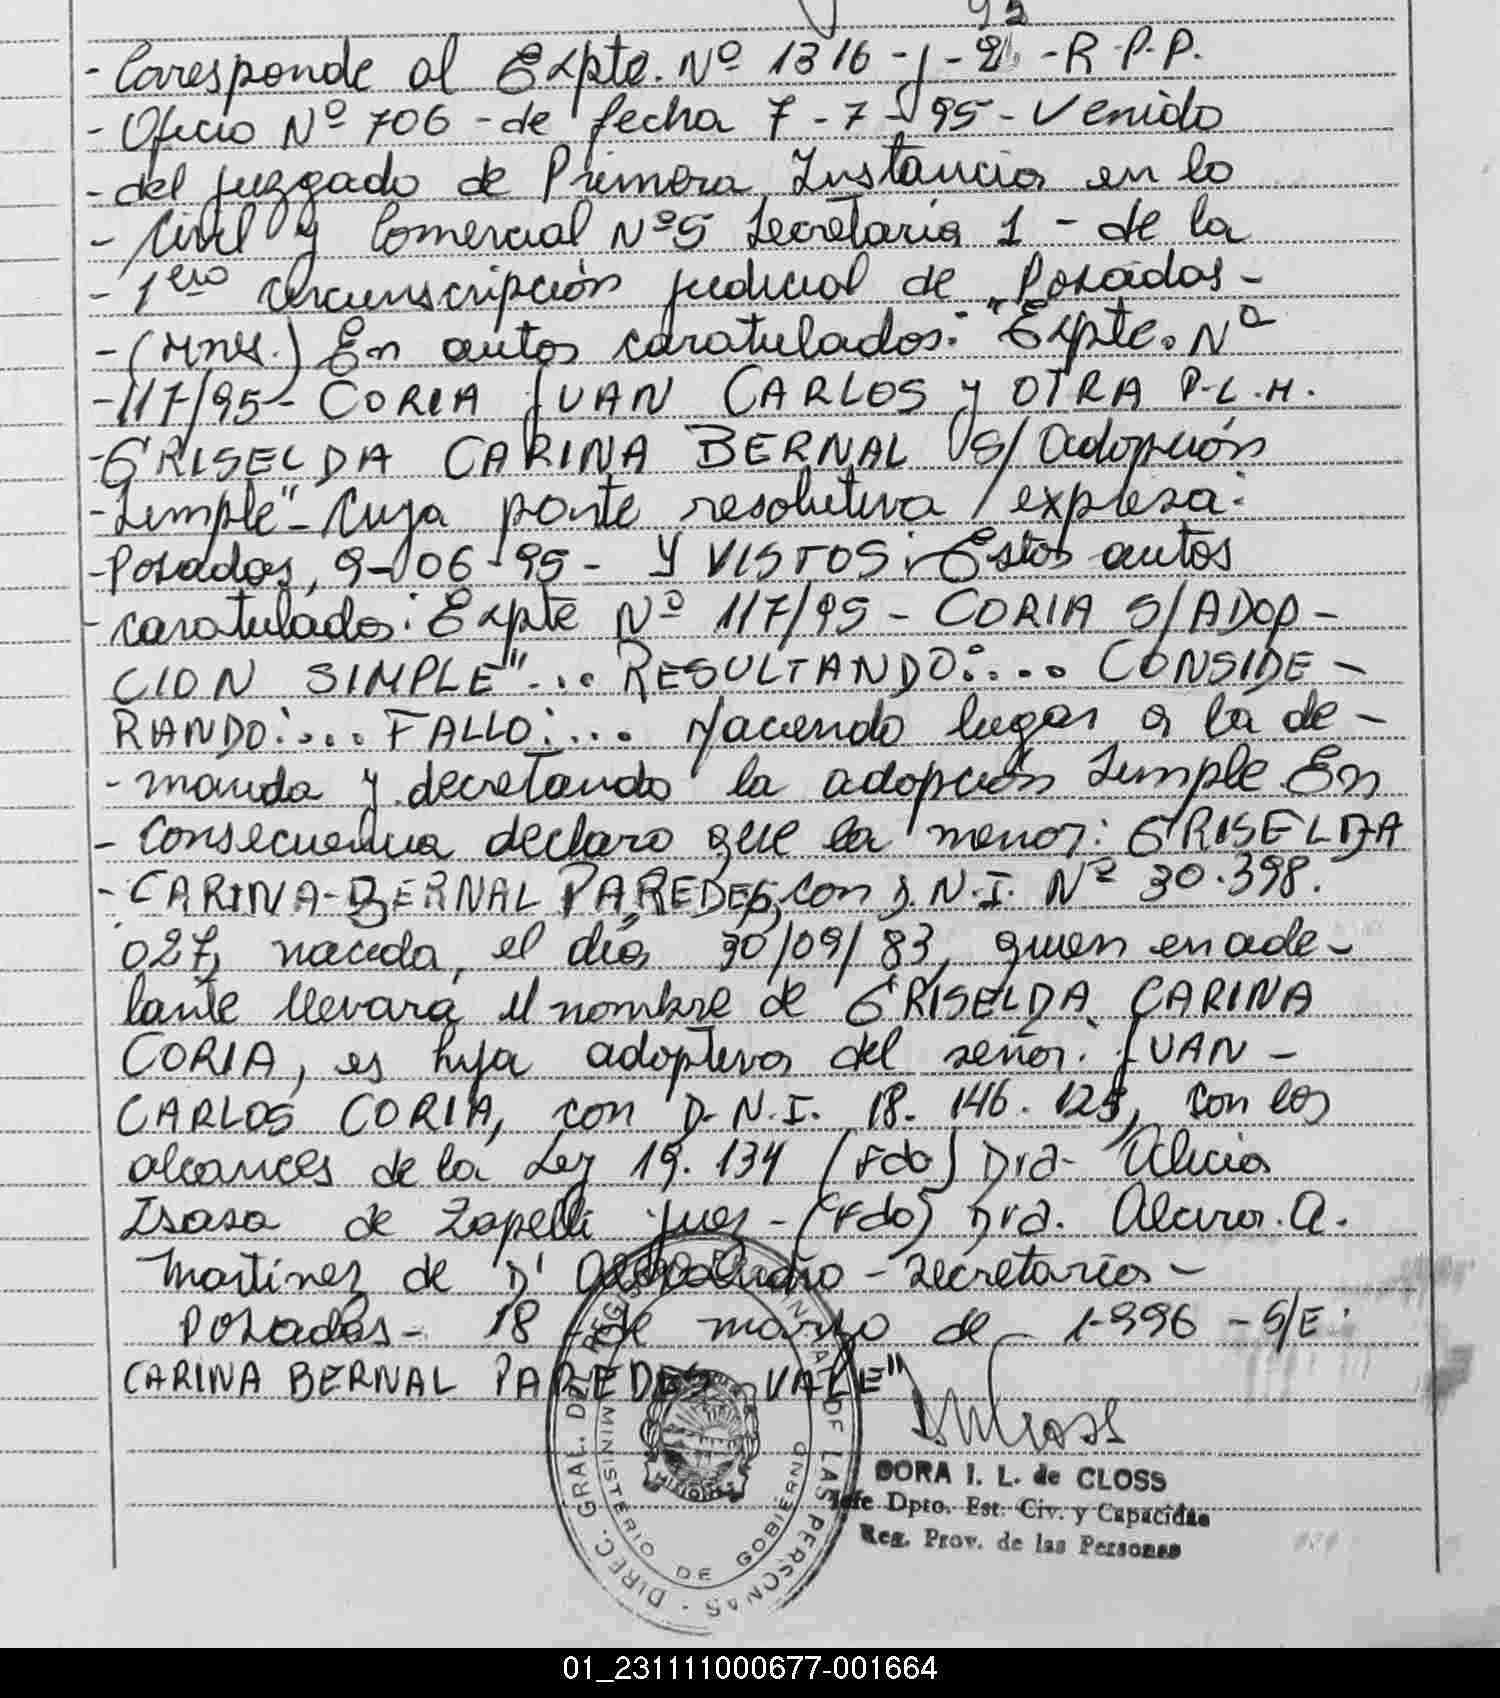 - Corresponde al Expte. Nº 1316-J-2 -R-P.P.
- Oficio Nº 706 - de fecha 7-7-95 - Venido
- del juzgado de Primera Instancia en lo
- Civil y Comercial Nº5 Secretaria 1 - de la
- 1era circunscripción judicial de Posadas -
- (Mnes.) En autos caratulados: "Expte. Nº
- 117/95 - CORIA JUAN CARLOS y OTRA P.L.H.
- GRISELDA CARINA BERNAL S/ adopción
- Simple" - Cuya parte resolutiva expresa:
- Posadas, 9-06-95 - Y VISTOS: Estos autos
- caratulados: Expte Nº 117/95 - CORIA S/ADOP-
CION SIMPLE"... RESULTANDO:.... CONSIDE-
RANDO:.... FALLO:... Haciendo lugar a la de-
- manda y decretando la adopción simple En
- consecuencia declaro que la menor: GRISELDA
- CARINA-BERNAL PAREDES, con D.N.I. Nº 30.398.
027, nacida, el día 30/09/83, quien en ade-
lante llevará el nombre de GRISELDA CARINA
CORIA, es hija adoptiva del señor: JUAN -
CARLOS CORIA, con D.N.I. 18.146.125, con los
alcances de la Ley 19.134 (Fdo) Dra. Alicia
Isasa de Zapelli juez - (Fdo) Dra. A.
Martinez de D' - Secretaria -
Posadas - 18 - de marzo de 1996 - S/E:
CARINA BERNAL PAREDES VALE"
DIREC. GRAL. DEL REG. PROVINCIAL DE LAS PERSONAS
MINISTERIO DE GOBIERNO
MISIONES
DORA I. L. de CLOSS
Jefe Dpto. Est. Civ. y Capacidad
Reg. Prov. de las Personas
01_231111000677-001664